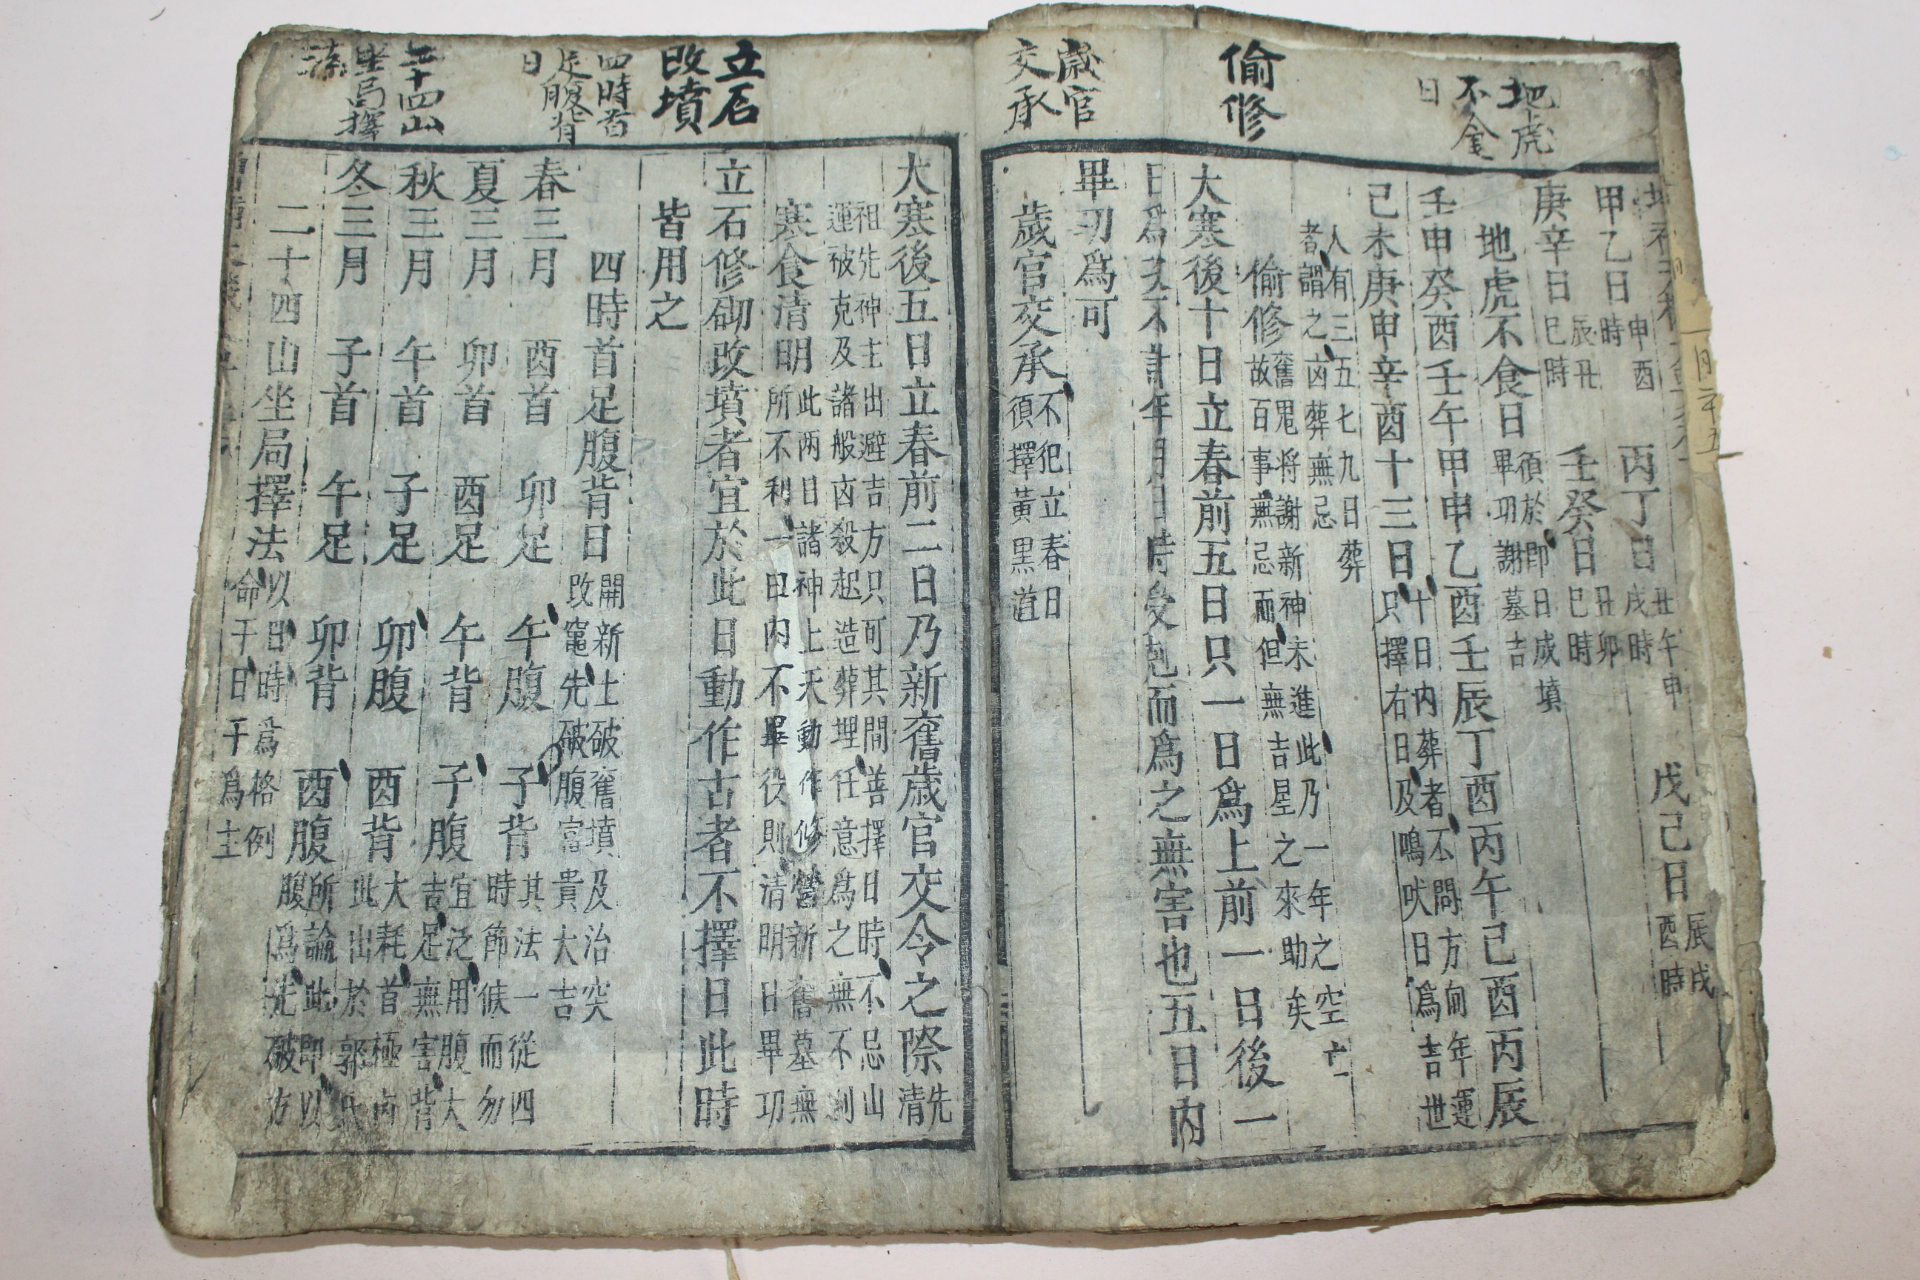 地虎
不食
日
偷修
歲官
交承
甲乙日時申酉 丙丁日戌時丑午申 戊己日辰戌酉時
庚辛日辰丑巳時 壬癸日丑卯巳時
地虎不食日須於即日成墳畢功謝墓吉
壬申癸酉壬午甲申乙酉壬辰丁酉丙午己酉丙辰
己未庚申辛酉十三日十日內葬者不問方向年運只擇右日及鳴吠日爲吉世
人有三五七九日葬
者謂之凶葬無忌
偷修舊鬼將謝新神未進此乃一年之空亡故百事無忌而但無吉星之來助矣
大寒後十日立春前五日只一日爲上前一日後一
日爲次不計年月日時受剋而爲之無害也五日內
畢功爲可
歲官交承不犯立春日須擇黃黑道
立石
改墳
四時首
足腹背
日
二十四山
坐局擇
法
大寒後五日立春前二日乃新舊歲官交令之際先清
祖先神主出避吉方只可其間善擇日時不忌山
運破克及諸般凶殺起造葬埋任意爲之無不利
寒食清明此兩日諸神上天動作修營新舊墓無所不利一日內不畢役則清明日畢功
立石修砌改墳者宜於此日動作古者不擇日此時
皆用之
四時首足腹背日開新土破舊墳及治突改竈先破腹富貴大吉
春三月 酉首 卯足 午腹 子背其法一從四時節候而勿
夏三月 卯首 酉足 午背 子腹宜泛用腹大吉足無害背
秋三月 午首 子足 卯腹 酉背大耗首極凶此出於郭氏
冬三月 子首 午足 卯背 酉腹所論此即以腹爲先破方
二十四山坐局擇法以日時爲格例命干日干爲主